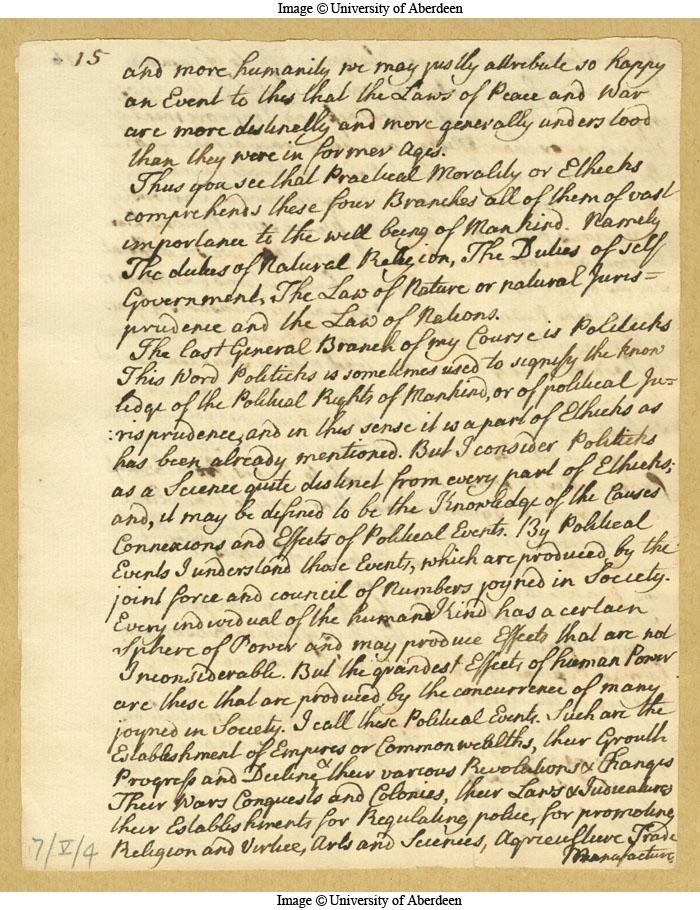 Image © University of Aberdeen
15
and more humanity we may justly attribute so happy
an Event to this that the Laws of Peace and War
are more distinctly and more generally understood
than they were in former Ages.
Thus you see that Practical Morality or Ethicks
comprehends these four Branches all of them of vast
importance to the well being of Mankind. Namely
The duties of Natural Religion, The Duties of self
Government, The Law of Nature or natural Juris=
prudence and the Law of Nations.
The last General Branch of my Course is Politicks
This Word Politicks is sometimes used to signify the know
ledge of the Political Rights of Mankind, or of political Ju=
:risprudence, and in this sense it is a part of Ethicks as
has been already mentioned. But I consider Politicks
as a Science quite distinct from every part of Ethicks;
and, it may be defined to be the Knowledge of the Causes
Connexions and Effects of Political Events. By Political
Events I understand those Events, which are produced by the
joint force and council of Numbers joyned in Society.
Every individual of the human Kind has a certain
Sphere of Power and may produce Effects that are not
Inconsiderable. But the grandest Effects of human Power
are these that are produced by the concurrence of many
joyned in Society. I call these Political Events. Such are the
Establishment of Empires or Commonwealths, their Growth
Progress and Decline & their various Revolutions & Changes
Their Wars Conquests and Colonies, their Laws & Judicatures
their Establishments for Regulating police, for promoting
Religion and Virtue, Arts and Sciences, Agriculture Trade
Manufacture
7/V/4
Image © University of Aberdeen